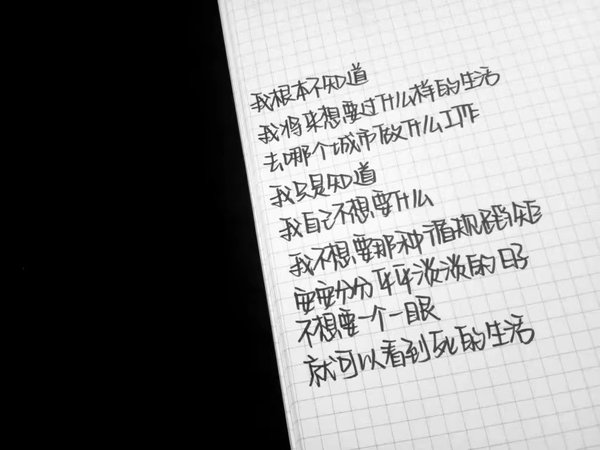 我根本不知道
我将来想要过什么样的生活
去哪个城市做什么工作
我只是知道
我自己不想要什么
我不想要那种循规蹈矩
安安分分平平淡淡的日子
不想要一个一眼
就可以看到死的生活